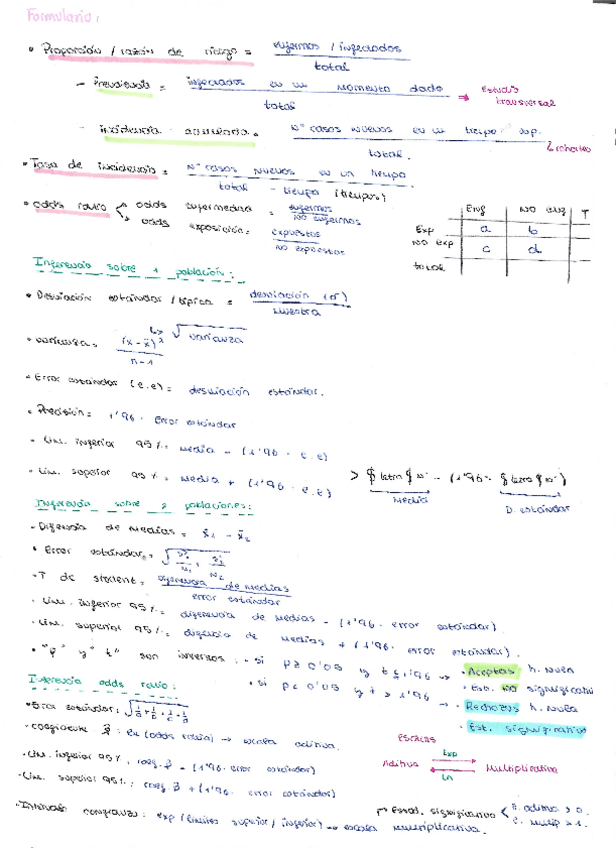 Formulario:
• Proporción / razón de riesgo = enfermos / infectados
total
- Prevalencia = infectados en un momento dado → Estudio
total transversal
- incidencia acumulada = Nº casos nuevos en un tiempo sup.
total. ↳ cohortes
• Tasa de incidencia = Nº casos nuevos en un tiempo
total - tiempo (tiempos)
• odds ratio < odds enfermedad = enfermos
NO enfermos
odds exposición = expuestos
NO expuestos
Enf NO enf T
Exp a b
NO exp c d
total
Inferencia sobre 1 población:
• Desviación estándar / típica = desviación (σ)
muestra
↳ √varianza
• varianza = (x - x̄)²
n - 1
• Error estándar (e.e) = desviación estándar.
• Precisión = 1'96 · error estándar
• Lim. inferior 95 % = media - (1'96 · e.e)
• Lim. superior 95 % = media + (1'96 · e.e)
> $ letra $ nº - (1'96 · $ letra $ nº)
Media D. estándar
Inferencia sobre 2 poblaciones:
• Diferencia de medias = x̄1 - x̄2
• Error estándar =
• T de student = diferencia de medias
error estándar
• Lim. inferior 95 % = diferencia de medias - (1'96 · error estándar)
• Lim. superior 95 % = diferencia de medias + (1'96 · error estándar).
• "p" y "t" son inversos : • si p ≥ 0'05 y t ≤ 1'96 → • Aceptas h. nula
• Est. NO significativo
• si p < 0'05 y t > 1'96 → • Rechazas h. nula
• Est. significativo
Inferencia odds ratio:
• Error estándar : √1/a + 1/b + 1/c + 1/d
• coeficiente β̂ : ln (odds ratio) → escala aditiva.
• Lim. inferior 95 % : coef. β - (1'96 · error estándar)
• Lim. superior 95 % : coef. β + (1'96 · error estándar)
• Intervalo confianza : exp (limites superior / inferior) → escala multiplicativa.
ESCALAS
Aditiva Exp Multiplicativa
Ln
Estad. significativo < E. aditiva > 0.
E. multip > 1.